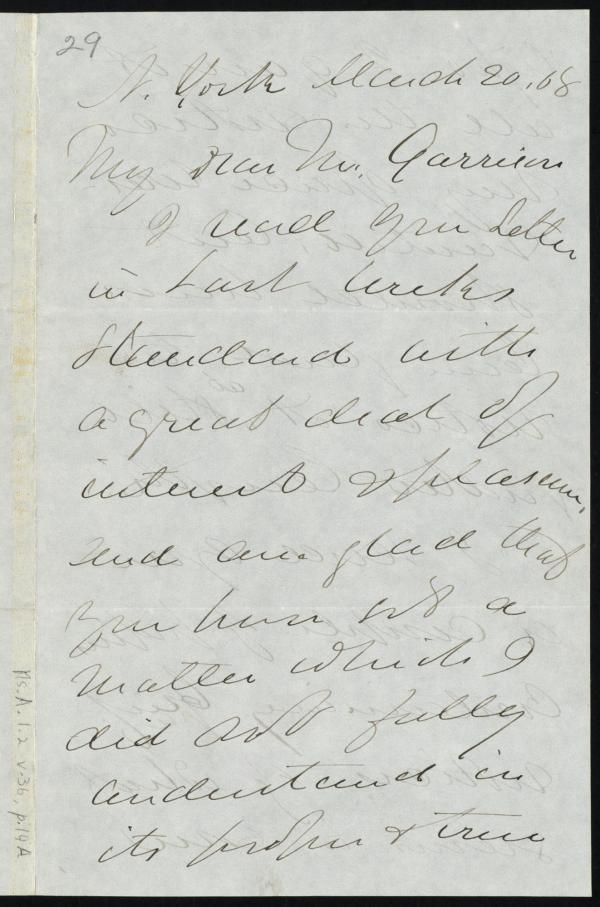 29
N. York March 20, 68
My dear Mr. Garrison
I read your Letter
in Last Weeks
Standard with
a great deal of
interest & pleasure,
and am glad that
you have set a
matter which I
did not fully
understand in
its proper & true
Ms.A.1.2 v.36, p.19A